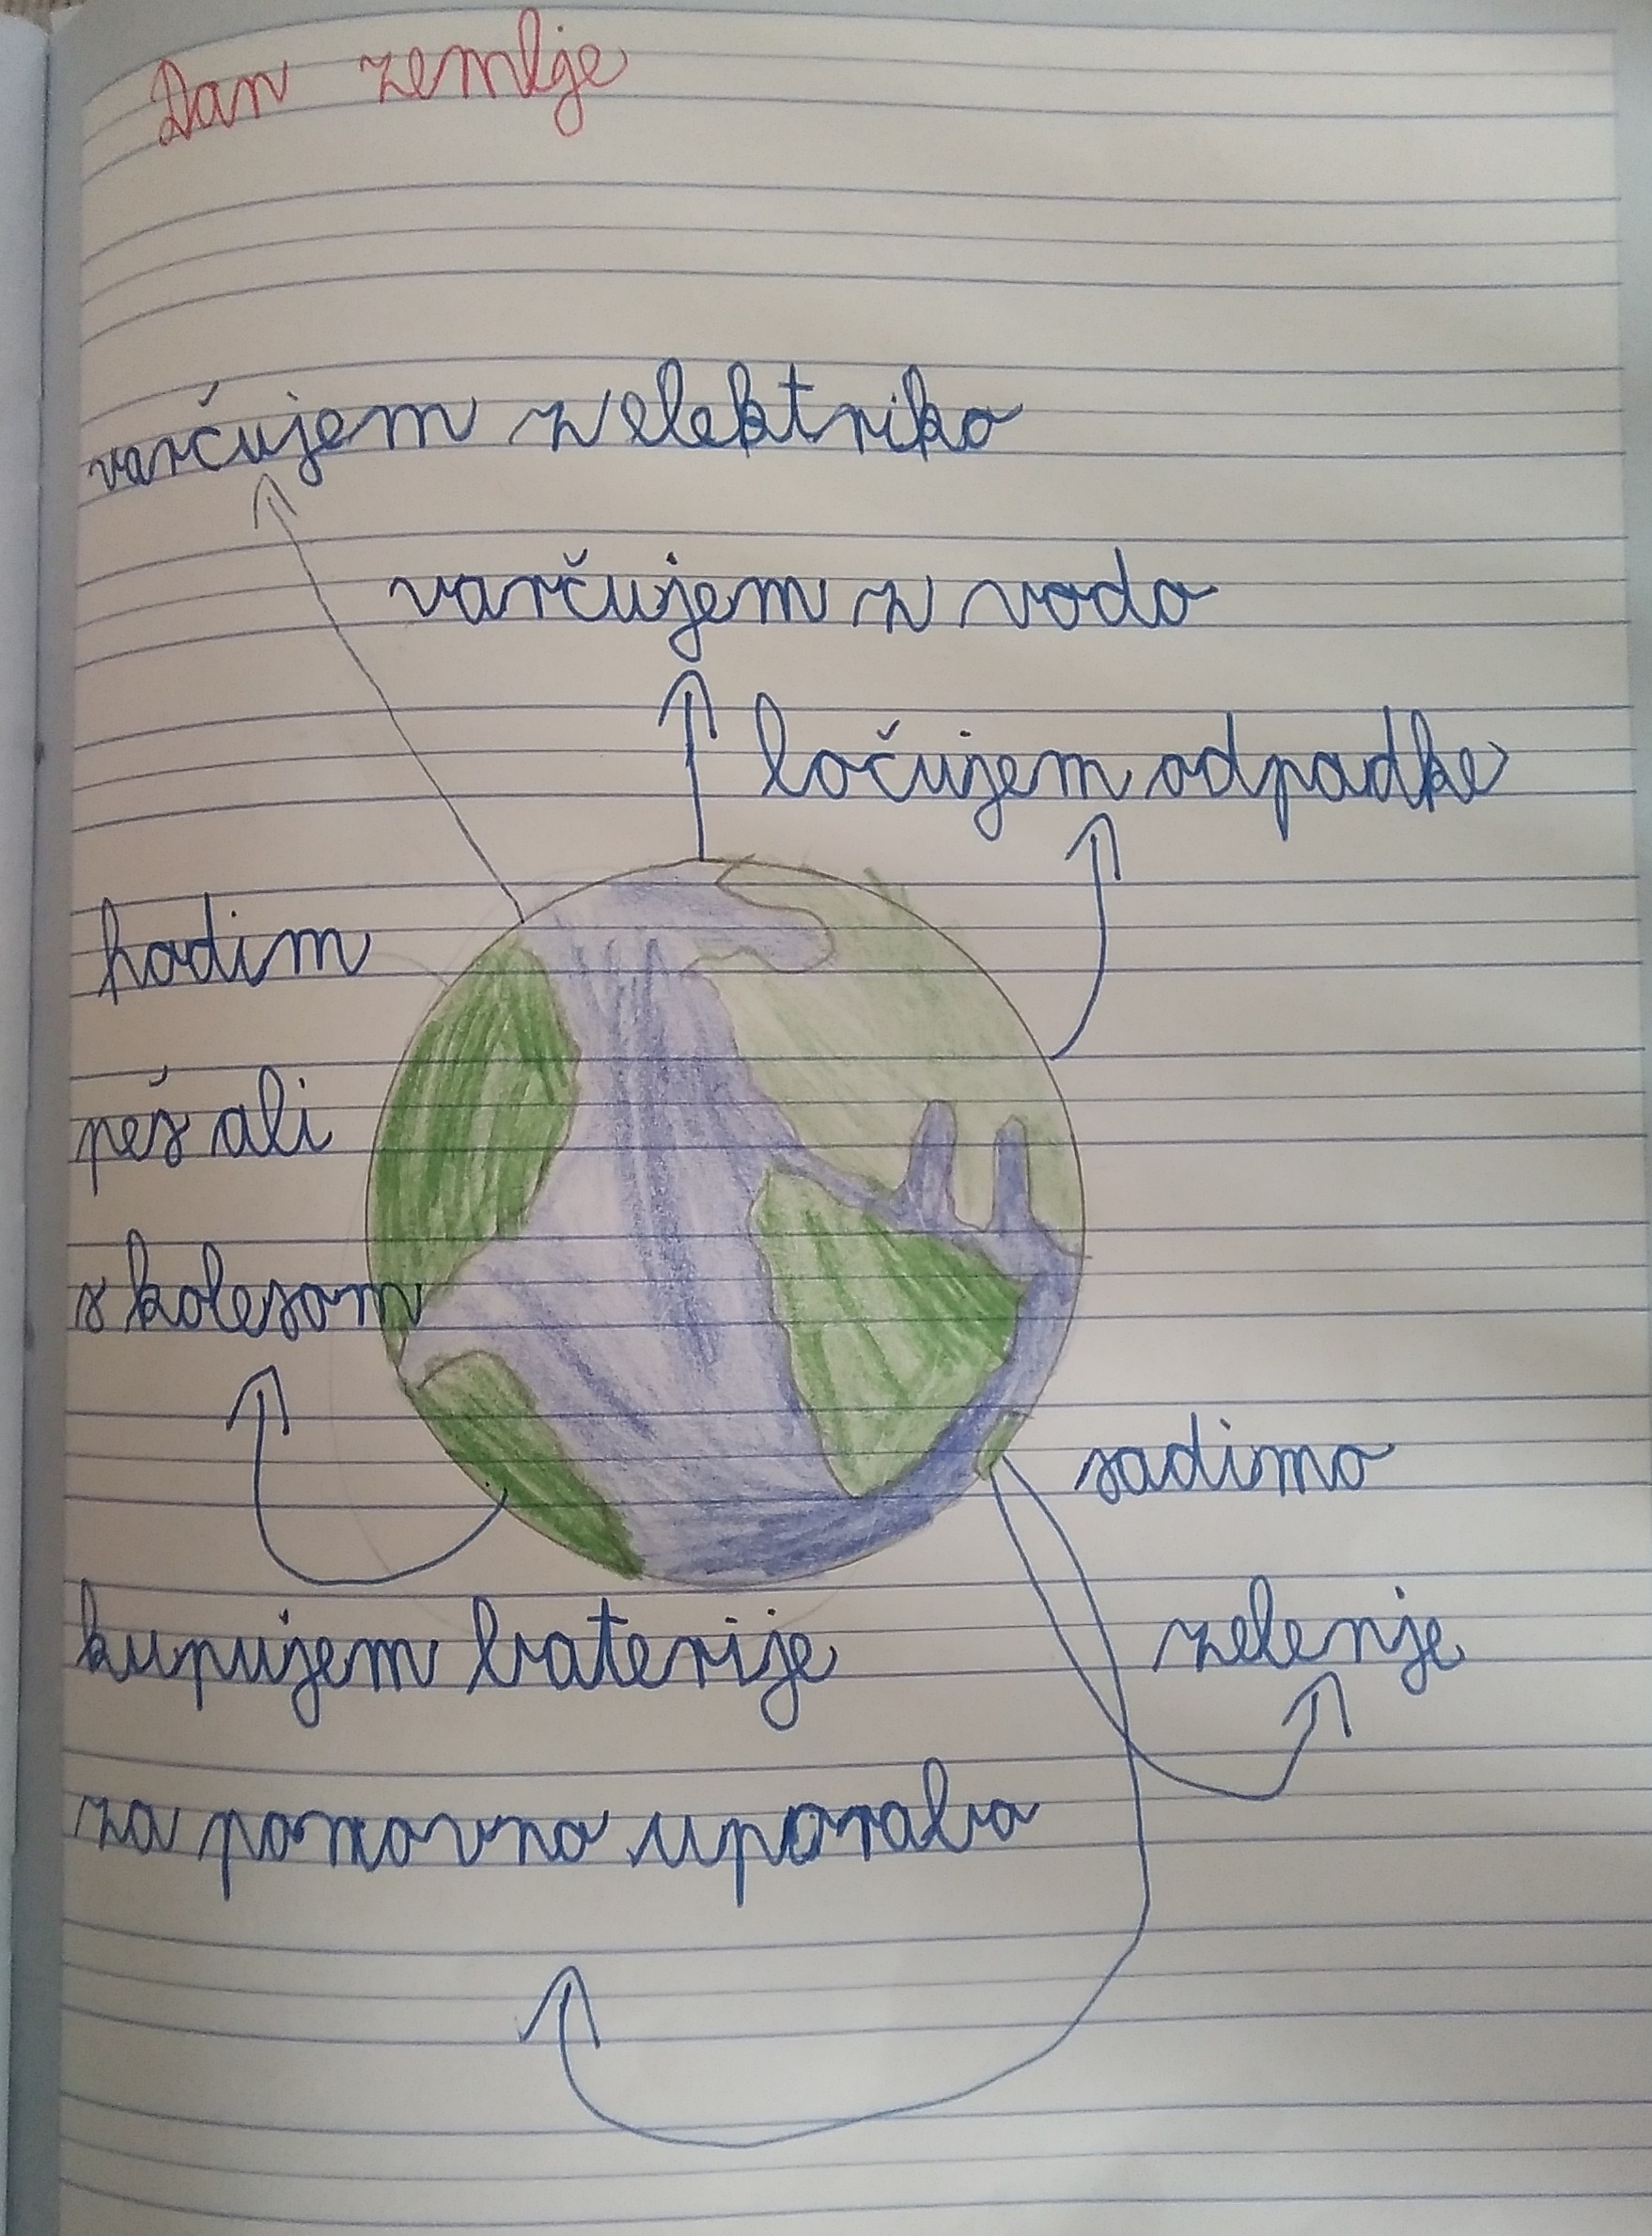 Dan zemlje
varčujem z elektriko
varčujem z vodo
ločujem odpadke
hodim
peš ali
s kolesom
sadimo
zelenje
kupujem baterije
za ponovno uporabo